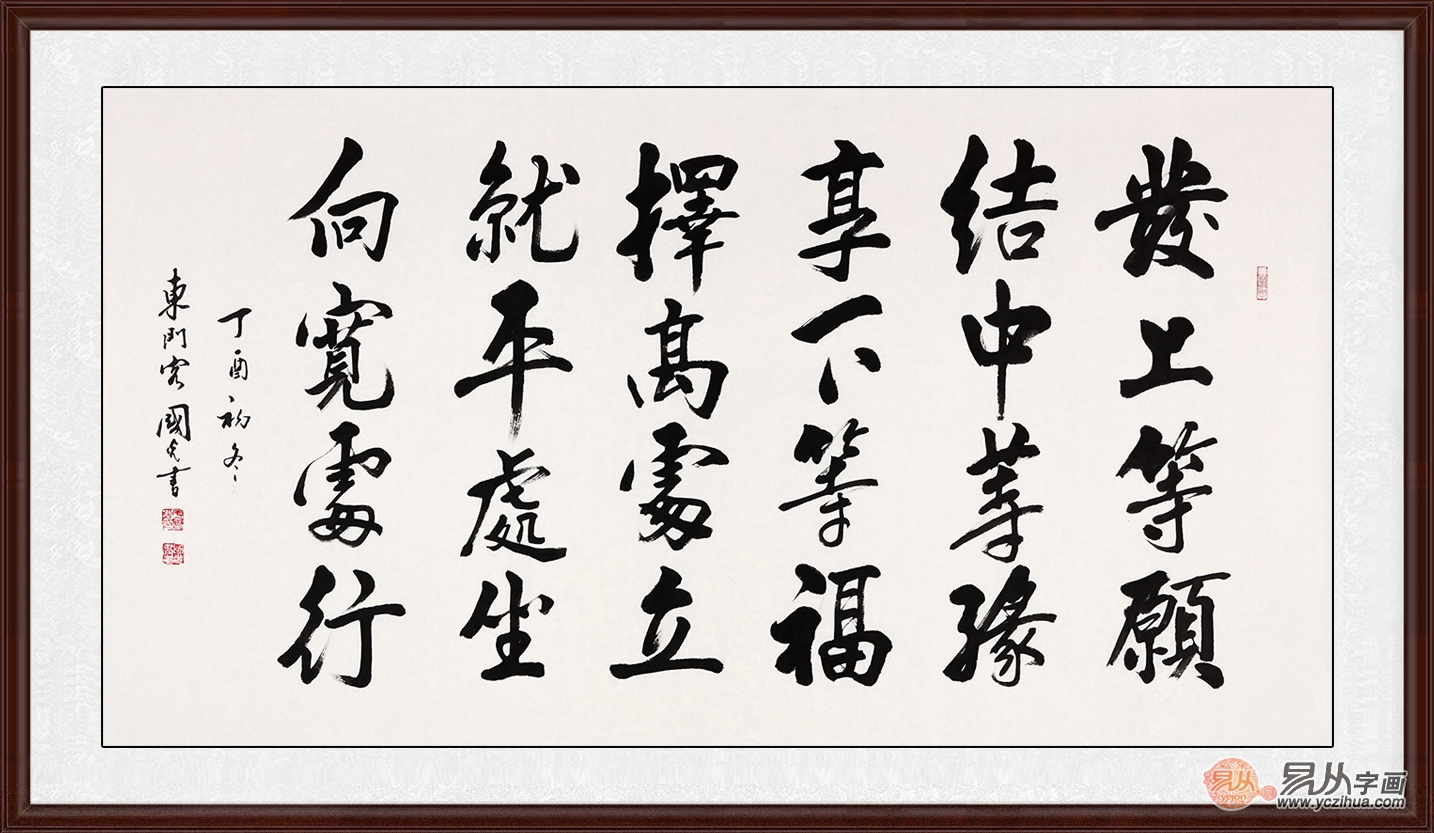 發上等願
結中等緣
享下等福
擇高處立
就平處坐
向寬處行
丁酉初冬
東門客國光書
易从
yigon
易从字画
www.yczihua.com